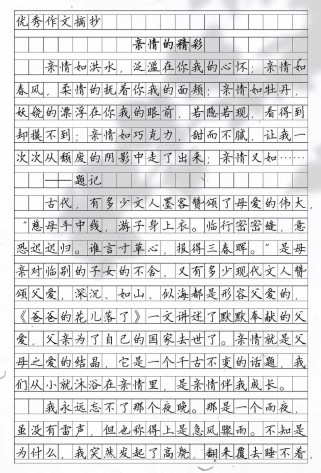 优秀作文摘抄
亲情的精彩
亲情如洪水，泛滥在你我的心怀；亲情如
春风，柔情的抚着你我的面颊；亲情如牡丹，
妖娆的漂浮在你我的眼前，若隐若现，看得到
却摸不到；亲情如巧克力，甜而不腻，让我一
次次从颓废的阴影中走了出来；亲情又如……
——题记
古代，有多少文人墨客赞颂了母爱的伟大，
“慈母手中线，游子身上衣。临行密密缝，意
恐迟迟归。谁言寸草心，报得三春晖。”是母
亲对临别的子女的不舍，又有多少现代文人赞
颂父爱，深沉、如山、似海都是形容父爱的，
《爸爸的花儿落了》一文讲述了默默奉献的父
爱，父亲为了自己的国家去世了。亲情就是父
母之爱的结晶，它是一个千古不变的话题，我
们从小就沐浴在亲情里，是亲情伴我成长。
我永远忘不了那个夜晚。那是一个雨夜，
虽没有雷声，但也称得上是急风骤雨。不知是
为什么，我突然发起了高烧，翻来覆去睡不着，